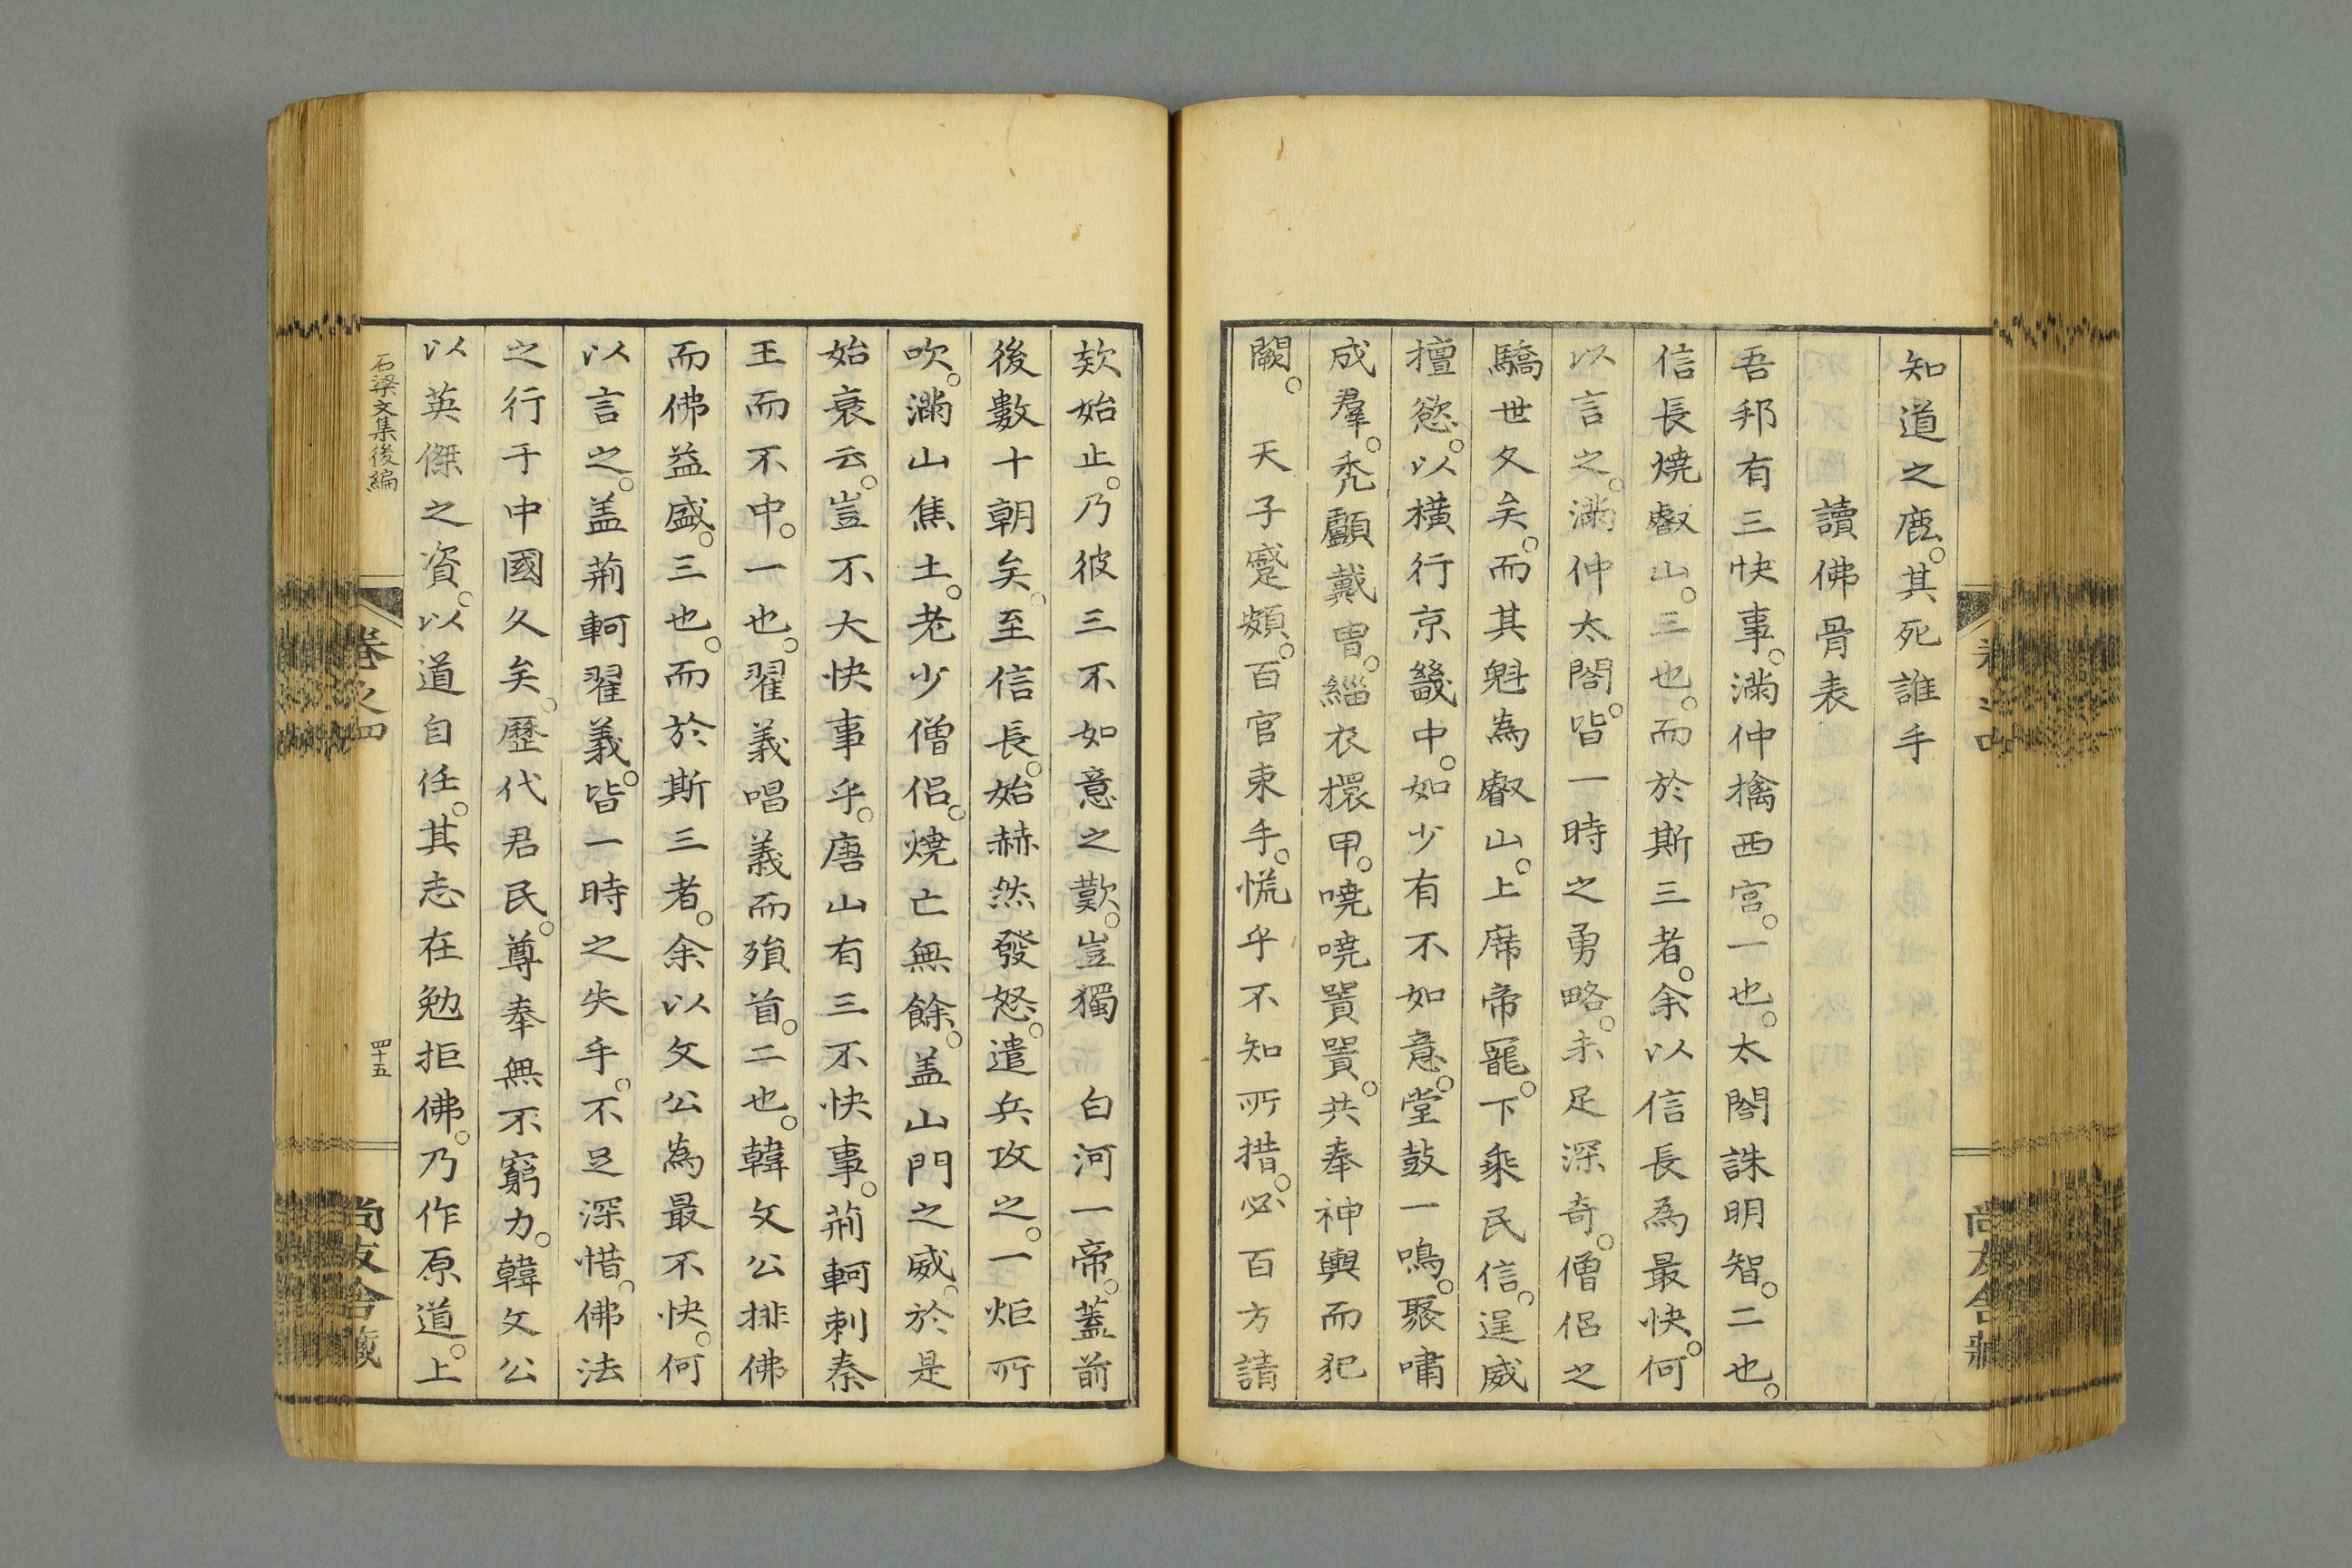 知道之鹿。其死誰手
讀佛骨表
吾邦有三快事。滿仲擒西宮。一也。太閤誅明智。二也。
信長燒叡山。三也。而於斯三者。余以信長為最快。何
以言之。滿仲太閤。皆一時之勇略。未足深奇。僧侶之
驕世久矣。而其魁為叡山。上席帝寵。下乘民信。逞威
擅慾。以橫行京畿中。如少有不如意。堂鼓一鳴。聚嘯
成羣。禿顱戴冑。緇衣擐甲。嘵嘵嘖嘖。共奉神輿而犯
闕。　天子蹙頞。百官束手。慌乎不知所措。必百方請
欵始止。乃彼三不如意之歎。豈獨　白河一帝。蓋前
後數十朝矣。至信長。始赫然發怒。遣兵攻之。一炬所
吹。滿山焦土。老少僧侶。燒亡無餘。盖山門之威。於是
始衰云。豈不大快事乎。唐山有三不快事。荊軻刺秦
王而不中。一也。翟義唱義而殞首。二也。韓文公排佛
而佛益盛。三也。而於斯三者。余以文公為最不快。何
以言之。盖荊軻翟義。皆一時之失手。不足深惜。佛法
之行于中國久矣。歷代君民。尊奉無不窮力。韓文公
以英傑之資。以道自任。其志在勉拒佛。乃作原道。上
石梁文集後編
卷之四
四十五
尚友舍藏